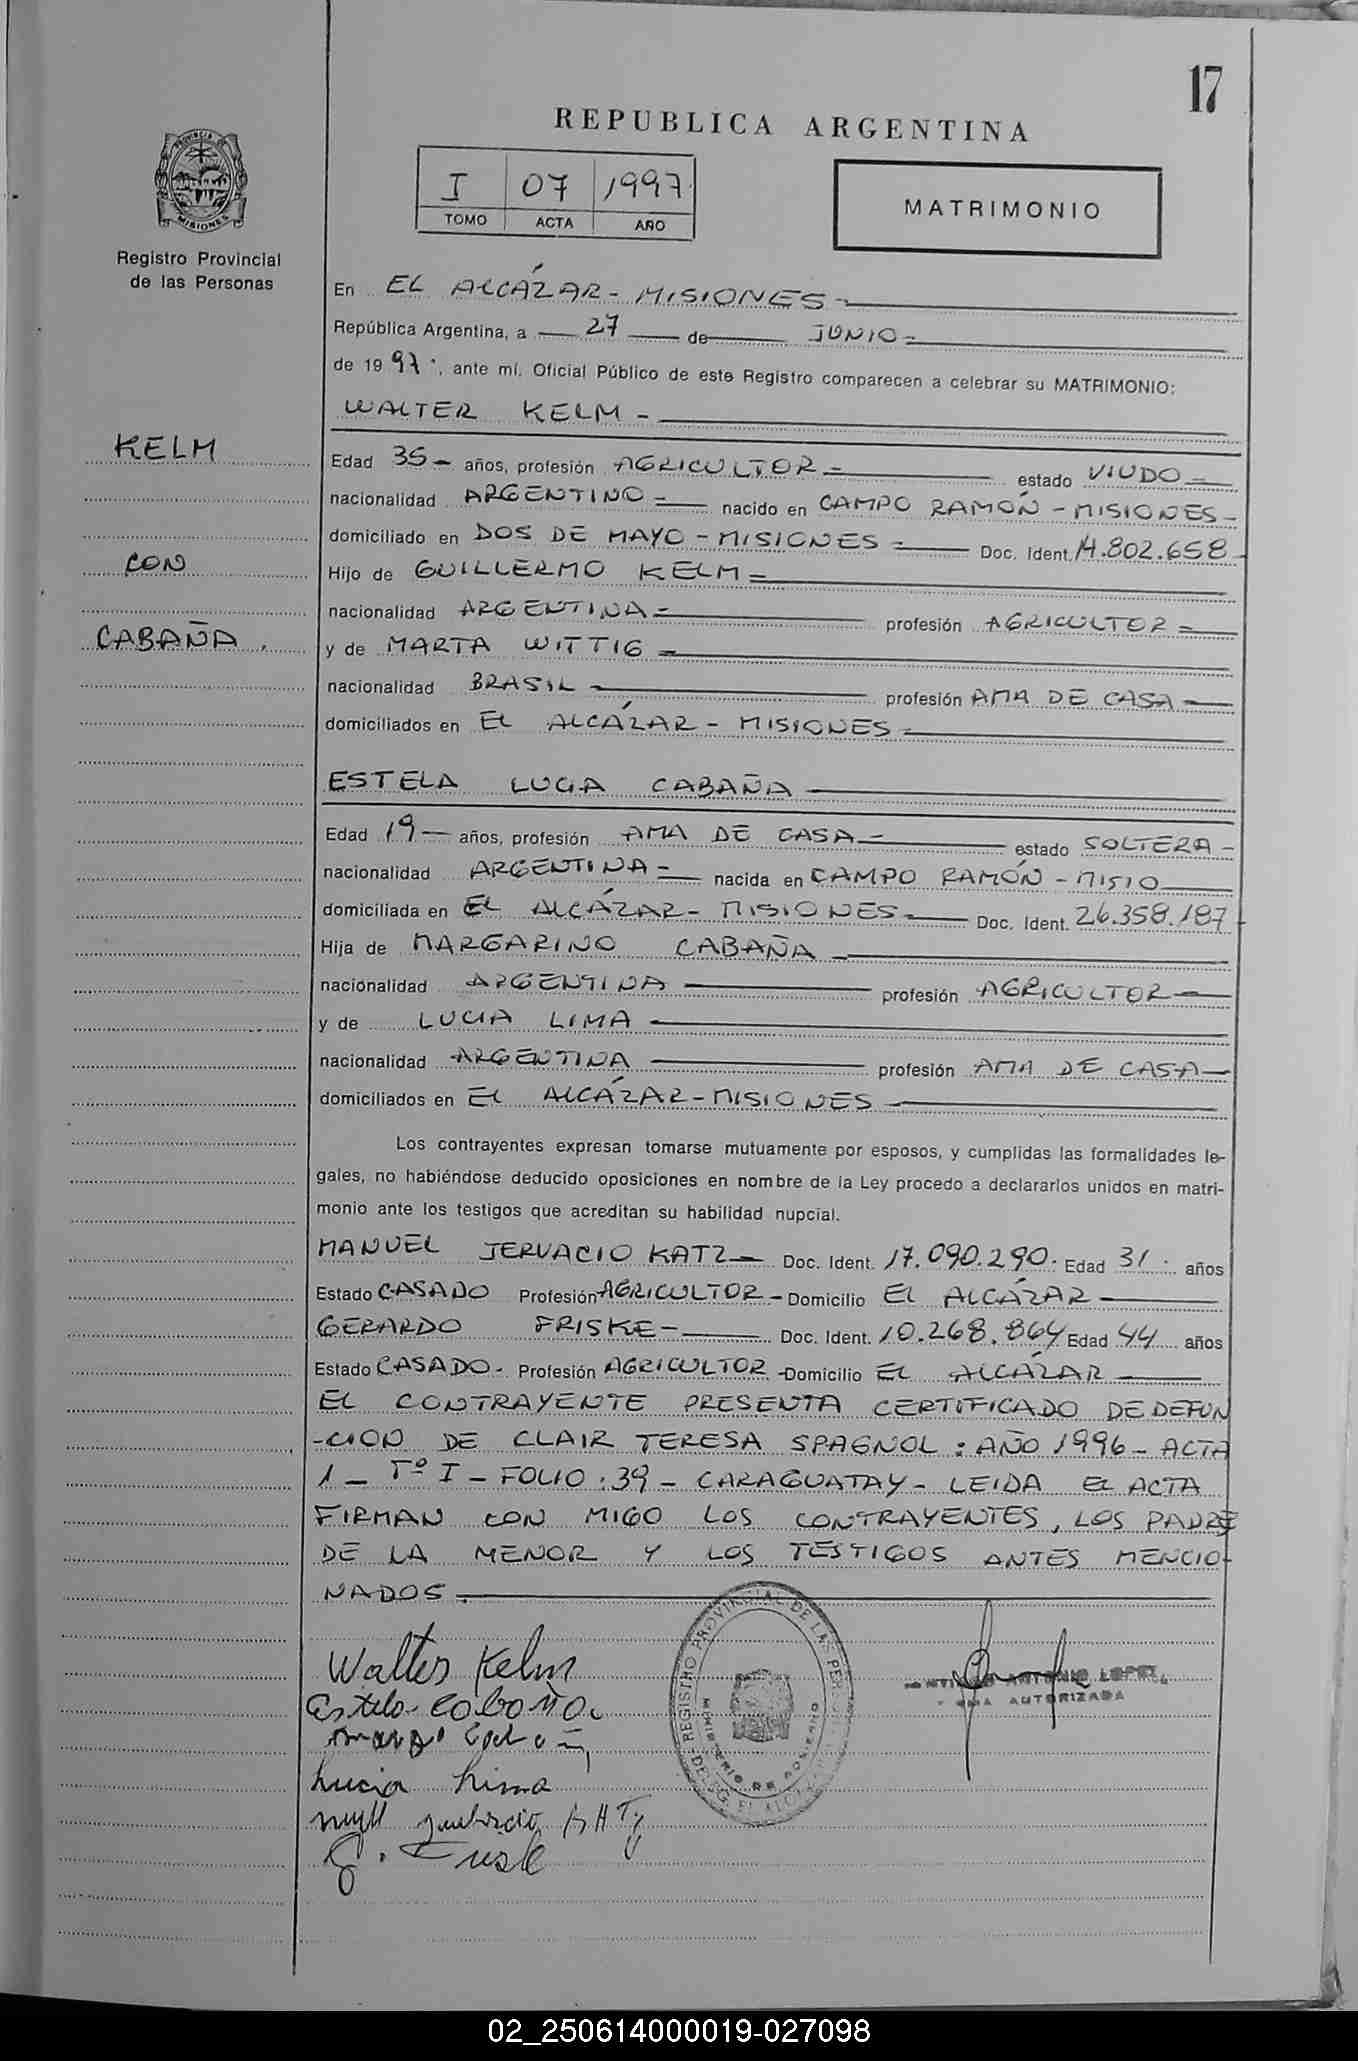 17
REPUBLICA ARGENTINA
I 07 1997
TOMO ACTA AÑO
MATRIMONIO
PROVINCIA DE
MISIONES
Registro Provincial
de las Personas
KELM
CON
CABAÑA.
En EL ALCÁZAR - MISIONES -
República Argentina, a 27 de JUNIO -
de 1997., ante mí, Oficial Público de este Registro comparecen a celebrar su MATRIMONIO:
WALTER KELM -
Edad 35 - años, profesión AGRICULTOR - estado VIUDO -
nacionalidad ARGENTINO - nacido en CAMPO RAMÓN - MISIONES -
domiciliado en DOS DE MAYO - MISIONES - Doc. Ident. 14.802.658 -
Hijo de GUILLERMO KELM -
nacionalidad ARGENTINA - profesión AGRICULTOR -
y de MARTA WITTIG -
nacionalidad BRASIL - profesión AMA DE CASA -
domiciliados en EL ALCÁZAR - MISIONES -
ESTELA LUCIA CABAÑA
Edad 19 - años, profesión AMA DE CASA - estado SOLTERA -
nacionalidad ARGENTINA - nacida en CAMPO RAMÓN - MISIO
domiciliada en EL ALCÁZAR - MISIONES - Doc. Ident. 26.358.187
Hija de MARGARINO CABAÑA -
nacionalidad ARGENTINA profesión AGRICULTOR -
y de LUCIA LIMA
nacionalidad ARGENTINA profesión AMA DE CASA -
domiciliados en EL ALCÁZAR - MISIONES
Los contrayentes expresan tomarse mutuamente por esposos, y cumplidas las formalidades le-
gales, no habiéndose deducido oposiciones en nombre de la Ley procedo a declararlos unidos en matri-
monio ante los testigos que acreditan su habilidad nupcial.
MANUEL JERVACIO KATZ - Doc. Ident. 17.090.290. Edad 31. años
Estado CASADO Profesión AGRICULTOR - Domicilio EL ALCÁZAR
GERARDO FRISKE - Doc. Ident. 10.268.864 Edad 44 años
Estado CASADO - Profesión AGRICULTOR - Domicilio EL ALCÁZAR
EL CONTRAYENTE PRESENTA CERTIFICADO DE DEFUN
-CION DE CLAIR TERESA SPAGNOL : AÑO 1996 - ACTA
1 - Tº I - FOLIO : 39 - CARAGUATAY - LEIDA EL ACTA
FIRMAN CON MIGO LOS CONTRAYENTES, LOS PADRES
DE LA MENOR Y LOS TESTIGOS ANTES MENCIO-
NADOS.
Walter Kelm
Estela Cabaña
Lucia Lima
REGISTRO PROVINCIAL DE LAS PER
MINISTERIO DE GOBIERNO
ANTONIO LOPEZ
FIRMA AUTORIZADA
02_250614000019-027098